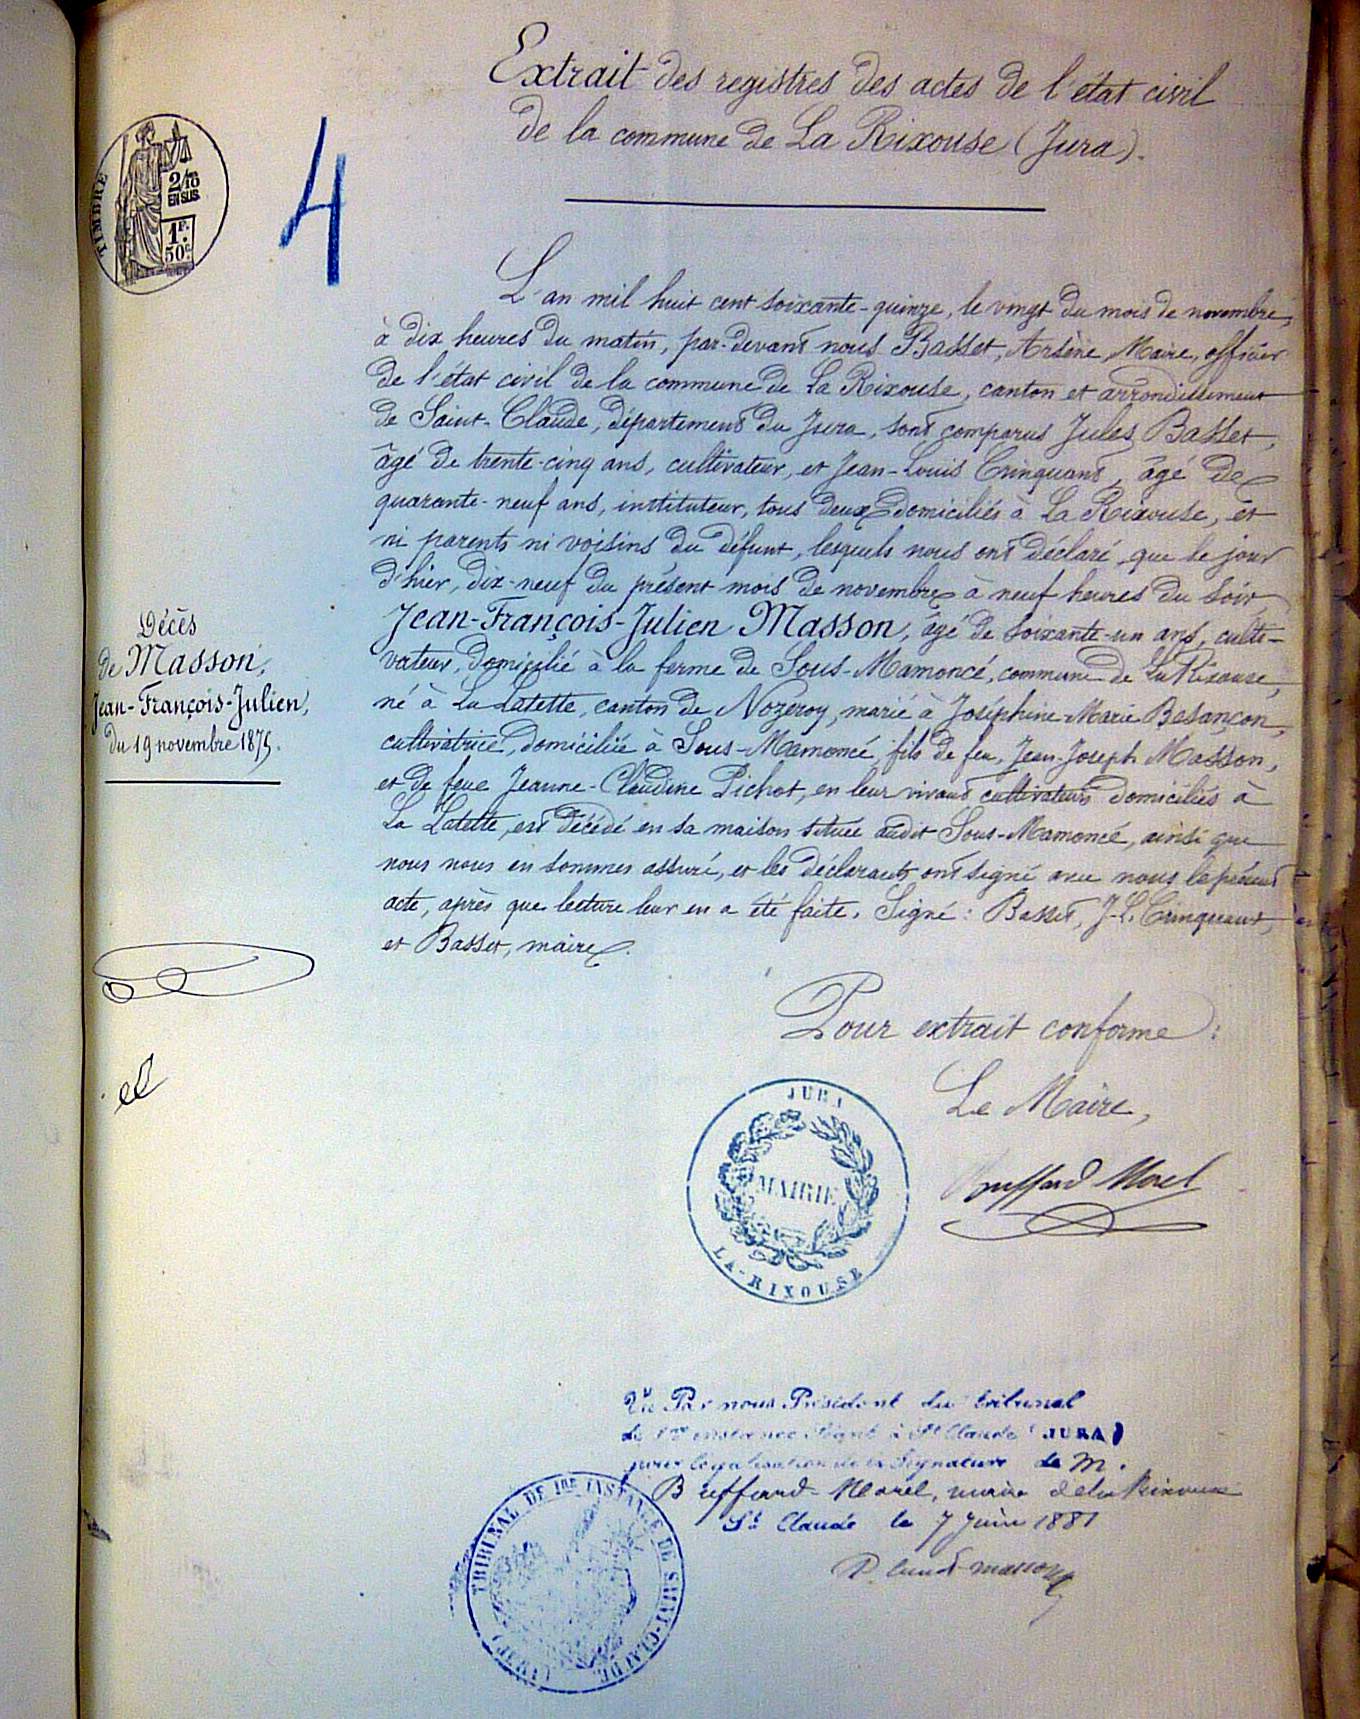 Extrait des registres des actes de l'état civil
de la commune de La Rixouse (Jura).
TIMBRE
2/10
EN SUS.
1F.
50c.
4
L'an mil huit cent soixante-quinze, le vingt du mois de novembre,
à dix heures du matin, par-devant nous Basset, Arsène, Maire, officier
de l'état civil de la commune de La Rixouse, canton et arrondissement
de Saint-Claude, département du Jura, sont comparus Jules Basset,
âgé de trente-cinq ans, cultivateur, et Jean-Louis Crinquand, âgé de
quarante-neuf ans, instituteur, tous deux domiciliés à La Rixouse, et
ni parents ni voisins du défunt, lesquels nous ont déclaré que le jour
d'hier, dix-neuf du présent mois de novembre à neuf heures du soir,
Jean-François-Julien Masson, âgé de soixante-un ans, culti-
vateur, domicilié à la ferme de Sous-Mamoncé, commune de La Rixouse,
né à La Latette, canton de Nozeroy, marié à Joséphine Marie Besançon,
cultivatrice, domiciliée à Sous-Mamoncé, fils de feu Jean-Joseph Masson,
et de feue Jeanne-Claudine Pichot, en leur vivant cultivateurs domiciliés à
La Latette, est décédé en sa maison située audit Sous-Mamoncé, ainsi que
nous nous en sommes assuré, et les déclarants ont signé avec nous le présent
acte, après que lecture leur en a été faite. Signé: Basset, J-L. Crinquand,
et Basset, maire.
Décès
de Masson,
Jean-François-Julien,
du 19 novembre 1875.
Pour extrait conforme:
Le Maire,
Buffard Morel
JURA
MAIRIE
LA-RIXOUSE
Vu Par nous Président du tribunal
de 1re instance séant à St Claude (JURA)
pour légalisation de la signature de M.
Buffard-Morel, maire de La Rixouse
St Claude le 7 Juin 1881
TRIBUNAL DE 1RE INSTANCE DE SAINT-CLAUDE (JURA)